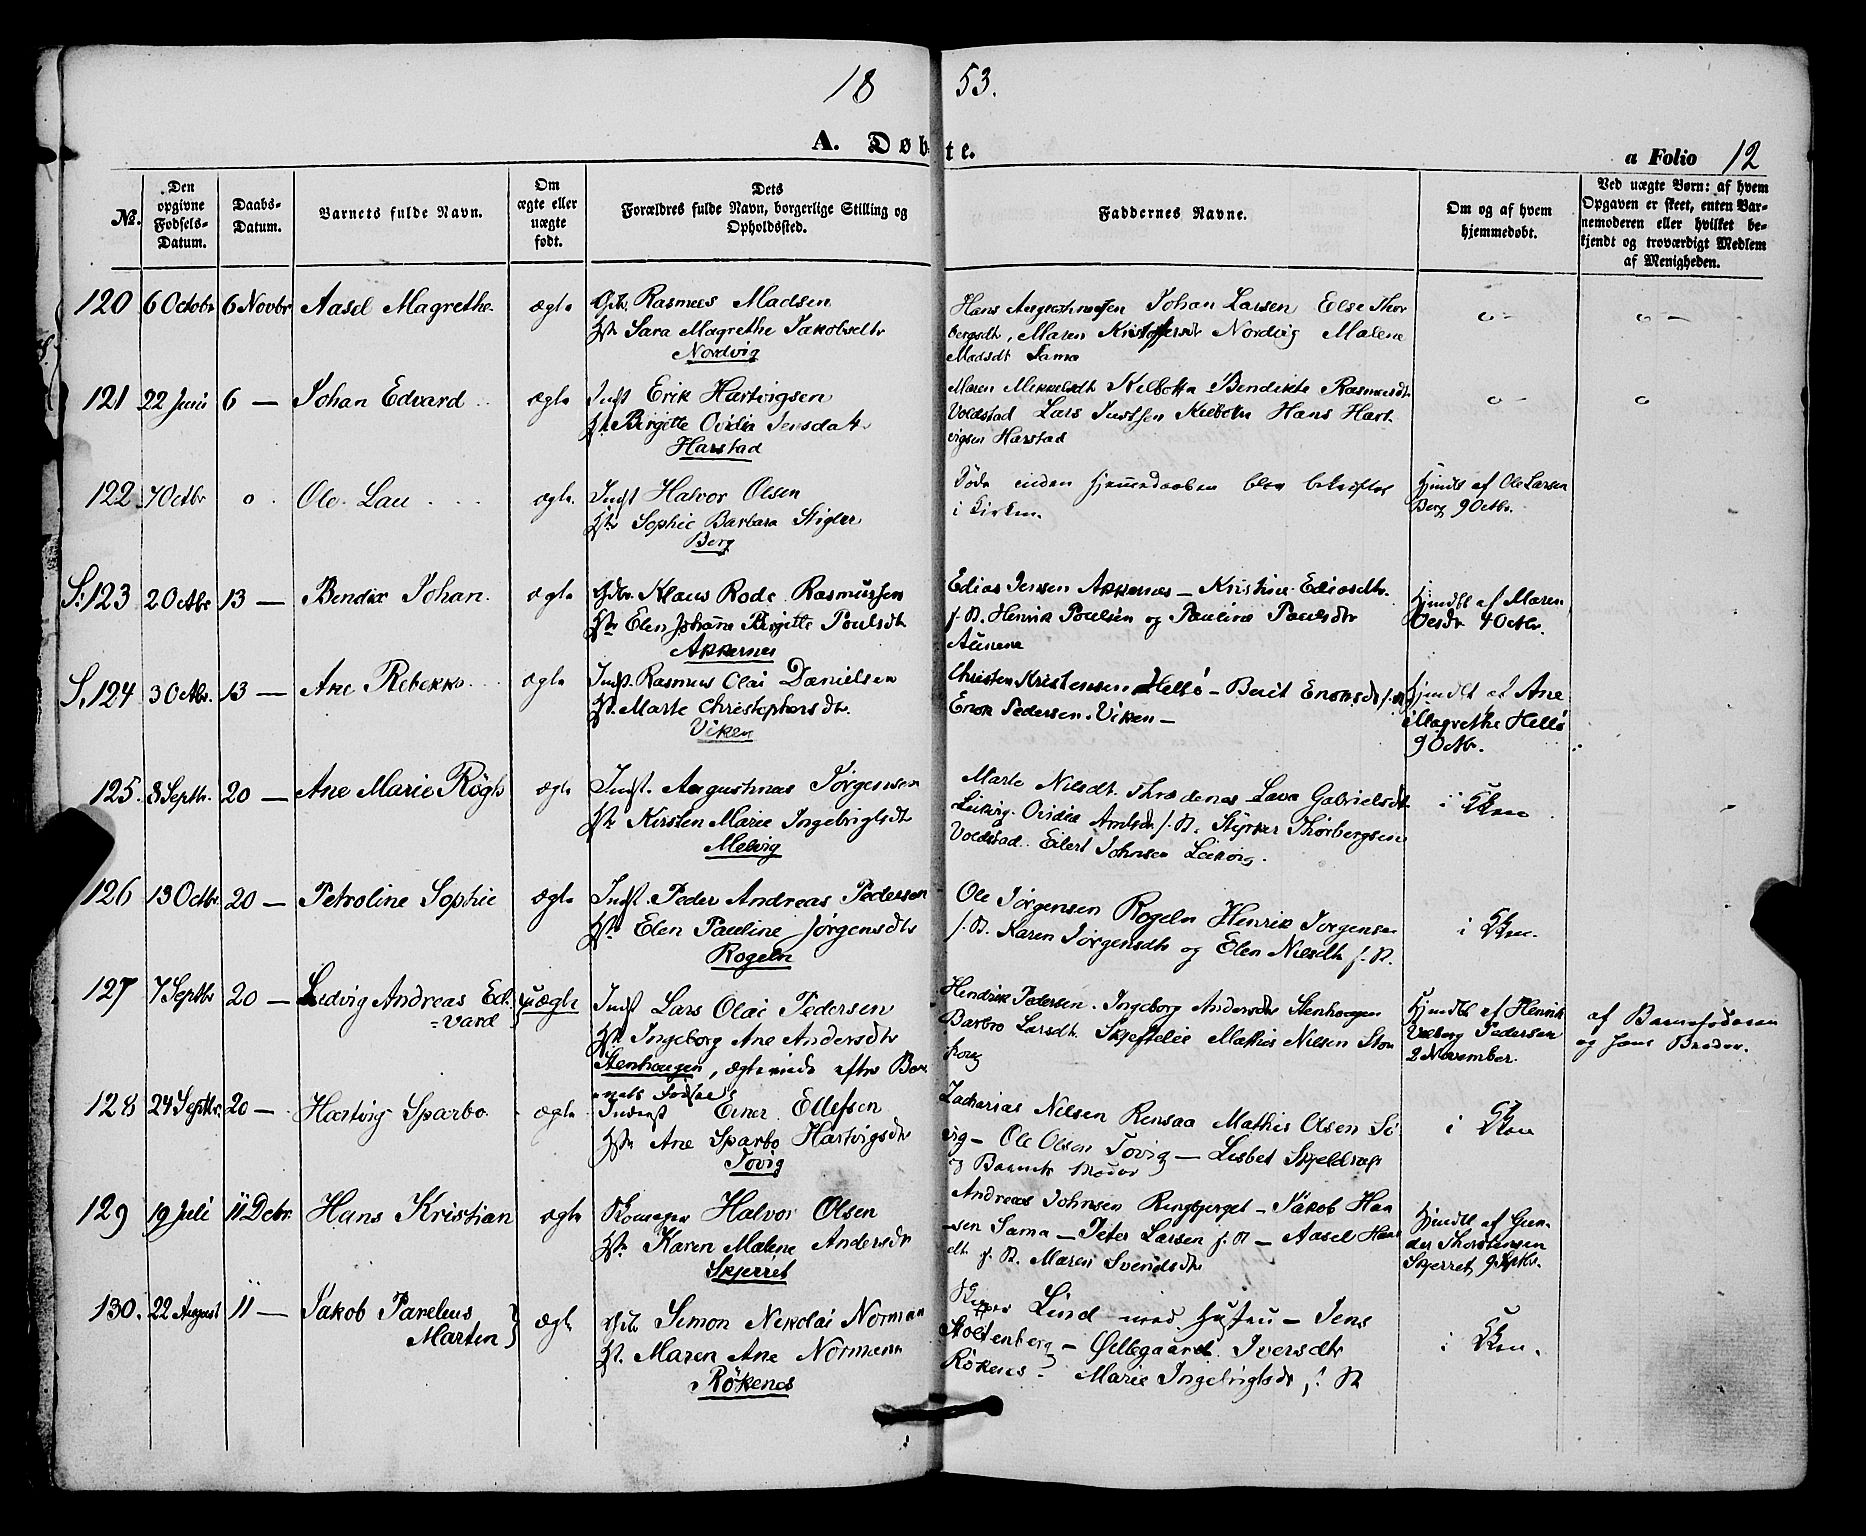 18 53.
A. Døbte.
a Folio 12
№.
Den opgivne Fødsels-Datum.
Daabs-Datum.
Barnets fulde Navn.
Om ægte eller uægte født.
Dets Forældres fulde Navn, borgerlige Stilling og Opholdssted.
Faddernes Navne.
Om og af hvem hjemmedøbt.
Ved uægte Børn: af hvem Opgaven er skeet, enten Barnemoderen eller hvilket bekjendt og troværdigt Medlem af Menigheden.
120 6 Octobr 6 Novbr Aasel Magrethe ægte Rasmus Madsen
Sara Magrethe Jakobsdtr
Nordvig
Hans Johan Larsen Else Thor
bergsdt, Maren Kristoffersdt Nordvig Malene
Madsdt Sama
o - o -
121 22 Juni 6 — Johan Edvard ægte Indst Erik Hartvigsen
Birgitte Ovidia Jensdatr
Harstad
Maren Mikkelsdt Kilbotn Bendikte Rasmusdt
Voldstad Lars Justsen Kilbotn Hans Hart
vigsen Harstad
o - o
122 7 Octbr o Ole Lau ægte Indst Halvor Olsen
Sophie Barbara Stigler
Berg
Døde inden Hjemmedaaben blev bekræftet
i Kirken.
Hjmdt af Ole Larsen
Berg 9 Octbr.
S. 123 2 Octbr 13 — Bendix Johan ægte Klaus Rode Rasmussen
Elen Johanna Birgitte Poulsdt
Akkernes
Edias Jensen Akkernes — Kristine Ediasdtr.
f. St. Henrik Poulsen og Pauline Paulsdtr
Aunene
Hjmdt af Maren
4 Octbr.
S. 124 3 Octbr. 13 — Ane Rebekka ægte Indst. Rasmus Olai Danielsen
Marte Christophersdtr.
Viken
Christen Kristensen Hellö — Berit Enoksdt f. St
Enok Pedersen Viken —
Hjmdt af Ane
Magrethe Hellö
9 Octbr.
125. 8 Septbr. 20 — Ane Marie Rögh ægte Indst. Augustinus Jørgensen
Kirsten Marie Ingebrigtsdtr
Melvig
Marte Nilsdt. Lava Gabrielsdt
Leikvig. Ovidia f. St. Styrker Thorbergsen
Voldstad. Eilert Johnsen Leikvig.
i Kken
126 13 Octbr. 20 — Petroline Sophie ægte Indst. Peder Andreas Pedersen
Elen Pauline Jørgensdtr
Rogeln
Ole Jørgensen Rogeln Henrik Jørgensen
f. St. Karen Jørgensdtr og Elen Nilsdtr f. St.
i Kken.
127 7 Septbr 20 — Ludvig Andreas Ed-
=vard uægte Indst Lars Olai Pedersen
Ingeborg Ane Andersdtr
Stenhaugen, ægteviede efter Bar
nets Fødsel
Hendrik Pedersen. Ingeborg Andersdtr Stenhaugen
Barbro Larsdt. Mathis Nilsen Ston
Hjmdt af Henrik
Pedersen
2 November.
af Barnefaderen
og hans Broder.
128 24 Septbr. 20 — Hartvig Sparbo ægte Inderst Einer Ellefsen
Ane Sparbo Hartvigsdtr
Tovig
Zacharias Nilsen Rensaa Mathis Olsen
Ole Olsen Tovig — Lisbet
og Barnets Moder
i Kken
129 19 Juli 11 Debr Hans Kristian ægte Halvor Olsen
Karen Malene Andersdtr
Skjerret
Andreas Johnsen Ringbjerget — Jakob Han
-sen Sama — Peter Larsen f. St — Aasel Hans
dt f. St. Maren Svendsdtr
Hjmdt af Gun-
der Thorstensen
Skjerret
130. 22 August 11 — Jakob Pareleus
Marten } ægte Simon Nikolai Norman
Maren Ane Normann
Rökenes
Lind med Hustru — Jens
Stoltenberg — Øllegaard Iversdtr
Rökenes — Marie Ingebrigtsdtr f. St
i Kken.